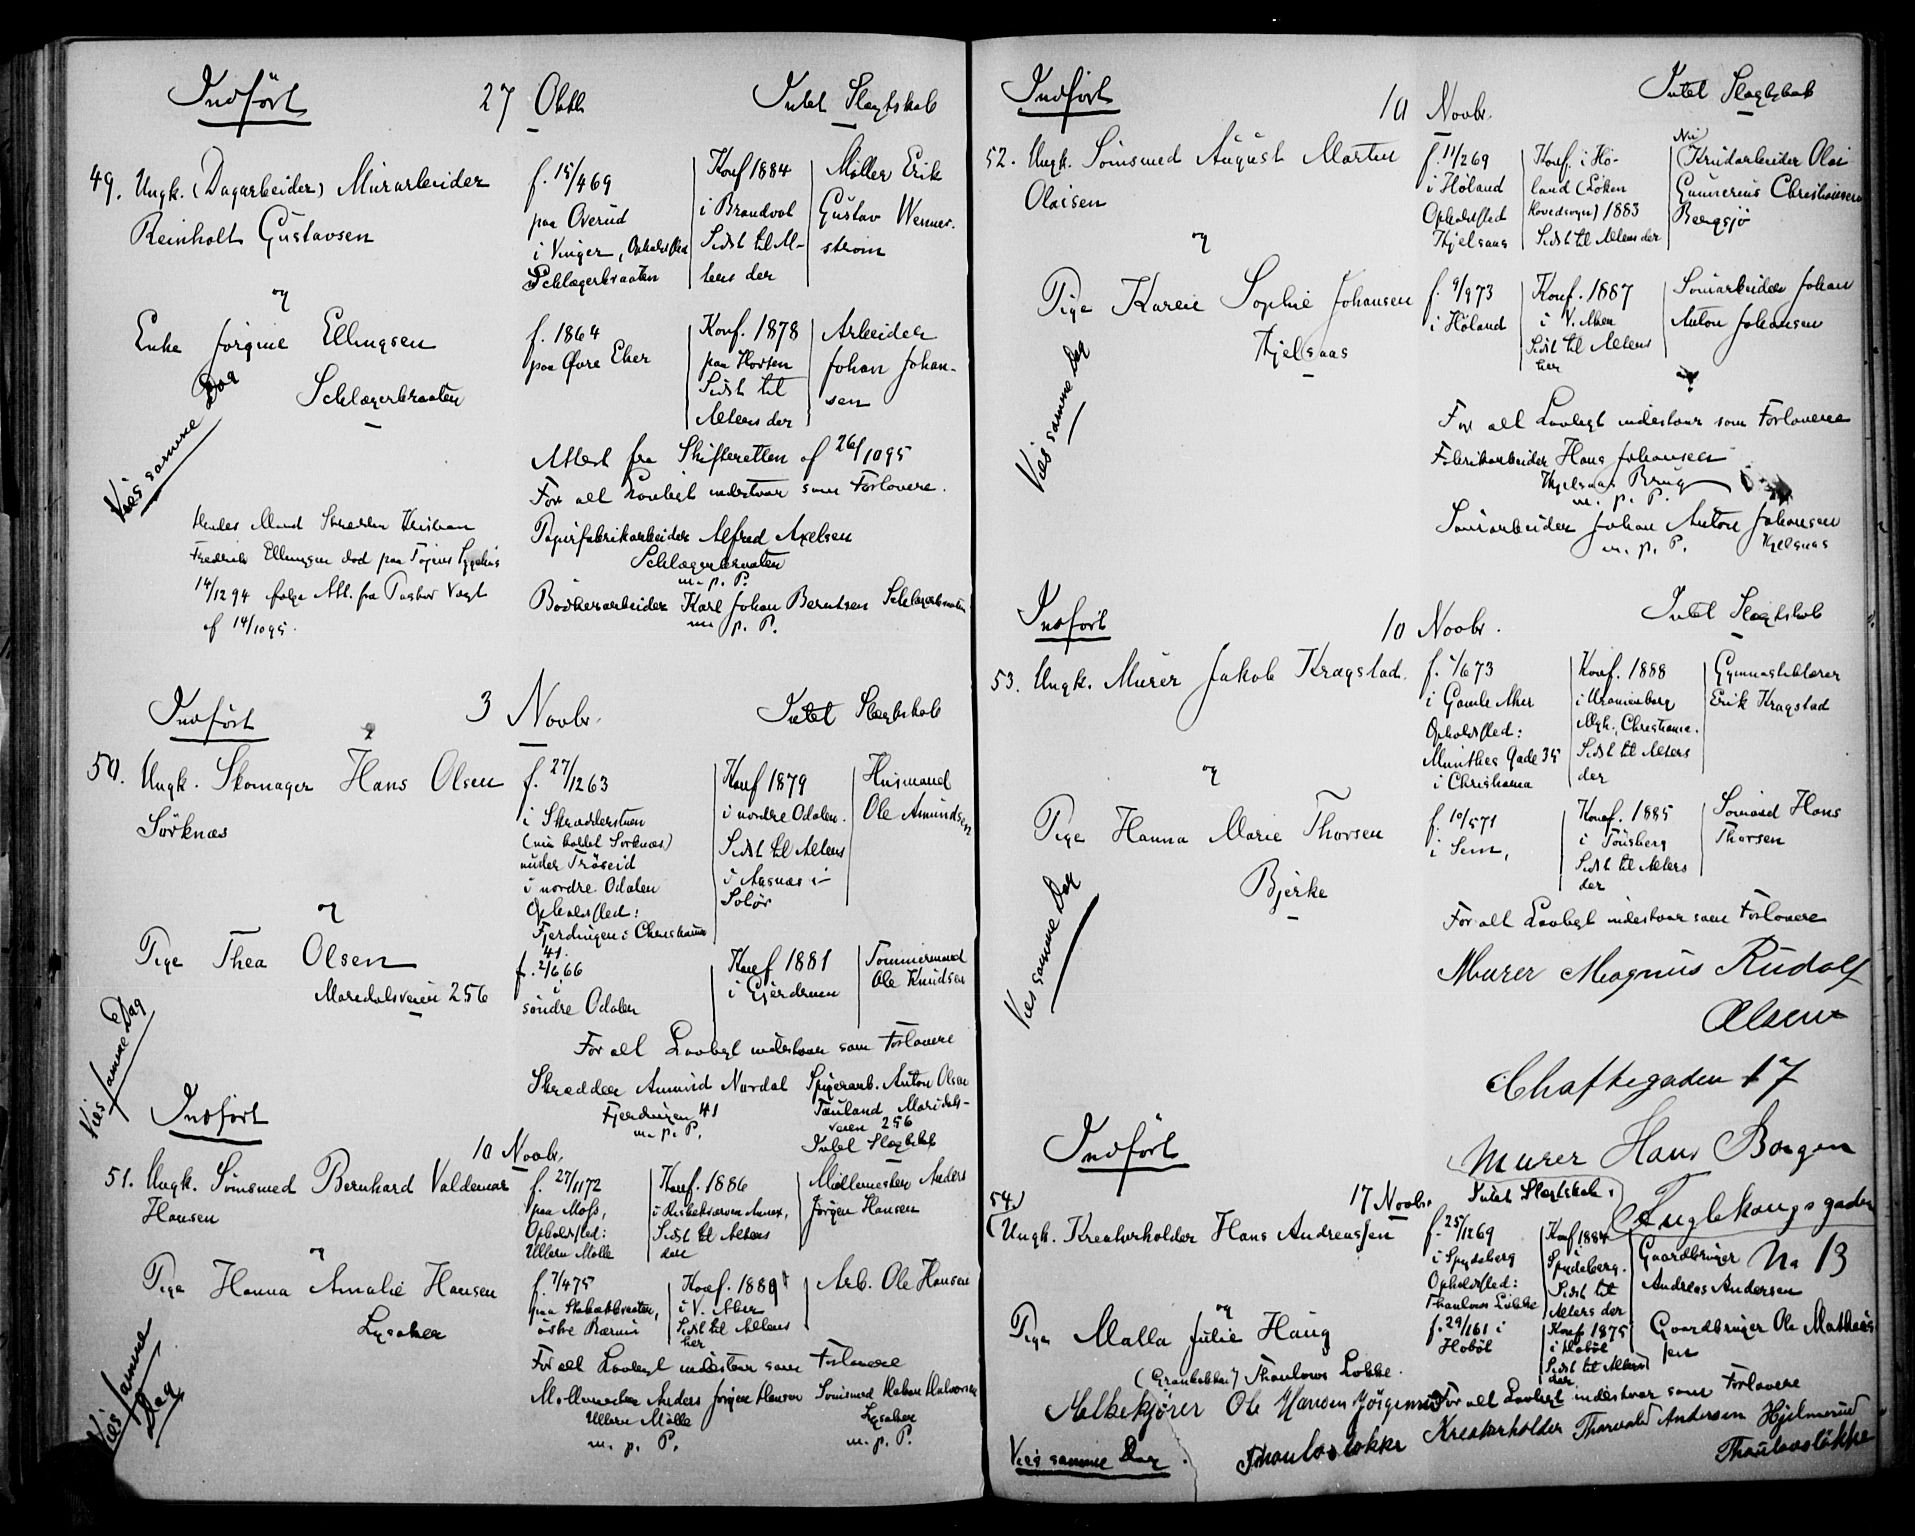 Indført 27 Oktb Intet Slægtskab
49. Ungk. (Dagarbeider) Murarbeider
Reinholt Gustavsen
f. 15/4 69
paa Överud
i Vinger, Opholdssted
Schlægerbraaten
Konf 1884
i Brandval
Sidst til Al-
ters der
Møller Erik
Gustav Wenner-
strøm
og
Enke Jørgine Ellingsen
Schlægerbraaten
f. 1864
paa Øvre Eker
Konf. 1878
paa Horten
Sidst til
Alters der
Arbeider
Johan Johan-
sen
Vies samme Dag
Attest fra Skifteretten af 26/10 95
For alt Lovligt indestaar som Forlovere.
Papirfabrikarbeider Alfred Axelsen
Schlægerbraaten
m. p. P.
Bødkerarbeider Karl Johan Berntsen Schlægerbraaten
m. p. P.
Hendes Mand Skrædder Kristian
Fredrik Ellingsen død paa Tøiens Sygehus
14/12 94 ifølge Att. fra Pastor Vogt
af 14/10 95.
Indført 3 Novbr. Intet Slægtskab
50. Ungk. Skomager Hans Olsen
Sörknæs
f. 27/12 63
i Skrædderstuen
(nu kaldet Sorknæs)
under Tröseid
i nordre Odalen
Opholdssted:
Fjerdingen i Christiania
41.
Konf 1879
i nordre Odalen.
Sidst til Alters
i Aasnæs i
Solör
Husmand
Ole Amundsen
og
Pige Thea Olsen
Maridalsveien 256
f. 2/6 66
i
söndre Odalen
Konf 1881
i Gjerdrum
Tommermand
Ole Knudsen
Vies samme Dag
For alt Lovligt indestaar som Forlovere
Skrædder Amund Nordal Spigerarb. Anton Olsen
Fjerdingen 41
m. p. P.
Tauland Maridals-
veien 256
Indført
10 Novbr. Intet Slægtskab
51. Ungk. Sömsmed Bernhard Valdemar
Hansen
f. 27/11 72
paa Moss,
Opholdssted:
Ullern Mølle
Konf. 1886
Sidst til Alters
der
Møllemester Anders
Jørgen Hansen
og
Pige Hanna Amalie Hansen
Lysaker
f. 7/4 75
östre Bærum
i V. Aker
Sidst til Alters
her
Arb. Ole Hansen
Vies samme
Dag
For alt Lovligt indestaar som Forlovere
Møllemester Anders Jørgen Hansen Sömsmed Haken Halvorsen
Ullern Mølle
m. p. P.
Lysaker
m. p. P.
Indført 10 Novbr. Intet Slægtskab
52. Ungk. Sömsmed August Martin
Olaisen
f. 11/2 69
i Høland
Opholdssted
Kjelsaas
Konf. i Hø-
land (Løken
Hovedsogn) 1883
Sidst til Alters der
Nu
(Krudarbeider Olai
Gunnerius Christiansen
Bergsjø
og
Pige Karen Sophie Johansen
Kjelsaas
f. 9/9 73
i Høland
Konf. 1887
i V. Aker
Sidst til Alters
her
Sömarbeider Johan
Anton Johansen
Vies samme Dag
For alt Lovligt indestaar som Forlovere
Fabrikarbeider Hans Johansen
Kjelsaas Brug
m. p. P.
Sömarbeider Johan Anton Johansen
m. p. P. Kjelsaas
Indført
10 Novbr. Intet Slægtskab
53. Ungk. Murer Jakob Kragstad.
f. 1/6 73
i Gamle Aker
Opholdssted:
Munthes Gade 35
i Christiania
Konf. 1888
i Uranienborg
Mgh., Christiania.
Sidst til Alters
der
Gymnastiklærer
Erik Kragstad
og
Pige Hanna Marie Thorsen
Bjerke
f. 10/5 71
i Sem,
Konf. 1885
i Tönsberg
Sidst til Alters
der
Sömand Hans
Thorsen
Vies samme Dag
For alt Lovligt indestaar som Forlovere
Murer Magnus Rudolf
Olsen
Chaftegaden 17
Murer Hans Borgen
Fuglehaugsgaden
No 13
Indført
17 Novbr. Intet Slægtskab.
54.
Ungk. Kreaturholder Hans Andreassen
f. 25/12 69
i Spydeberg
Opholdssted:
Thaulows Løkke
Konf 1884
Spydeberg.
Sidst til
Alters der
Gaardbruger
Andreas Andersen
og
Pige Malla Julie Haug
Thaulows Løkke.
f. 29/1 61 i
Hobøl
Konf 1875
i Hobøl
Sidst til Alters
der
Gaardbruger Ole Mathias
sen
For alt Lovligt indestaar som Forlovere
Melkekjører Ole Hansen Jörgensrud
Thaulowsløkke
Kreaturholder Thorvald Andersen Hjelmerud
Thaulovsløkke
Vies samme Dag.